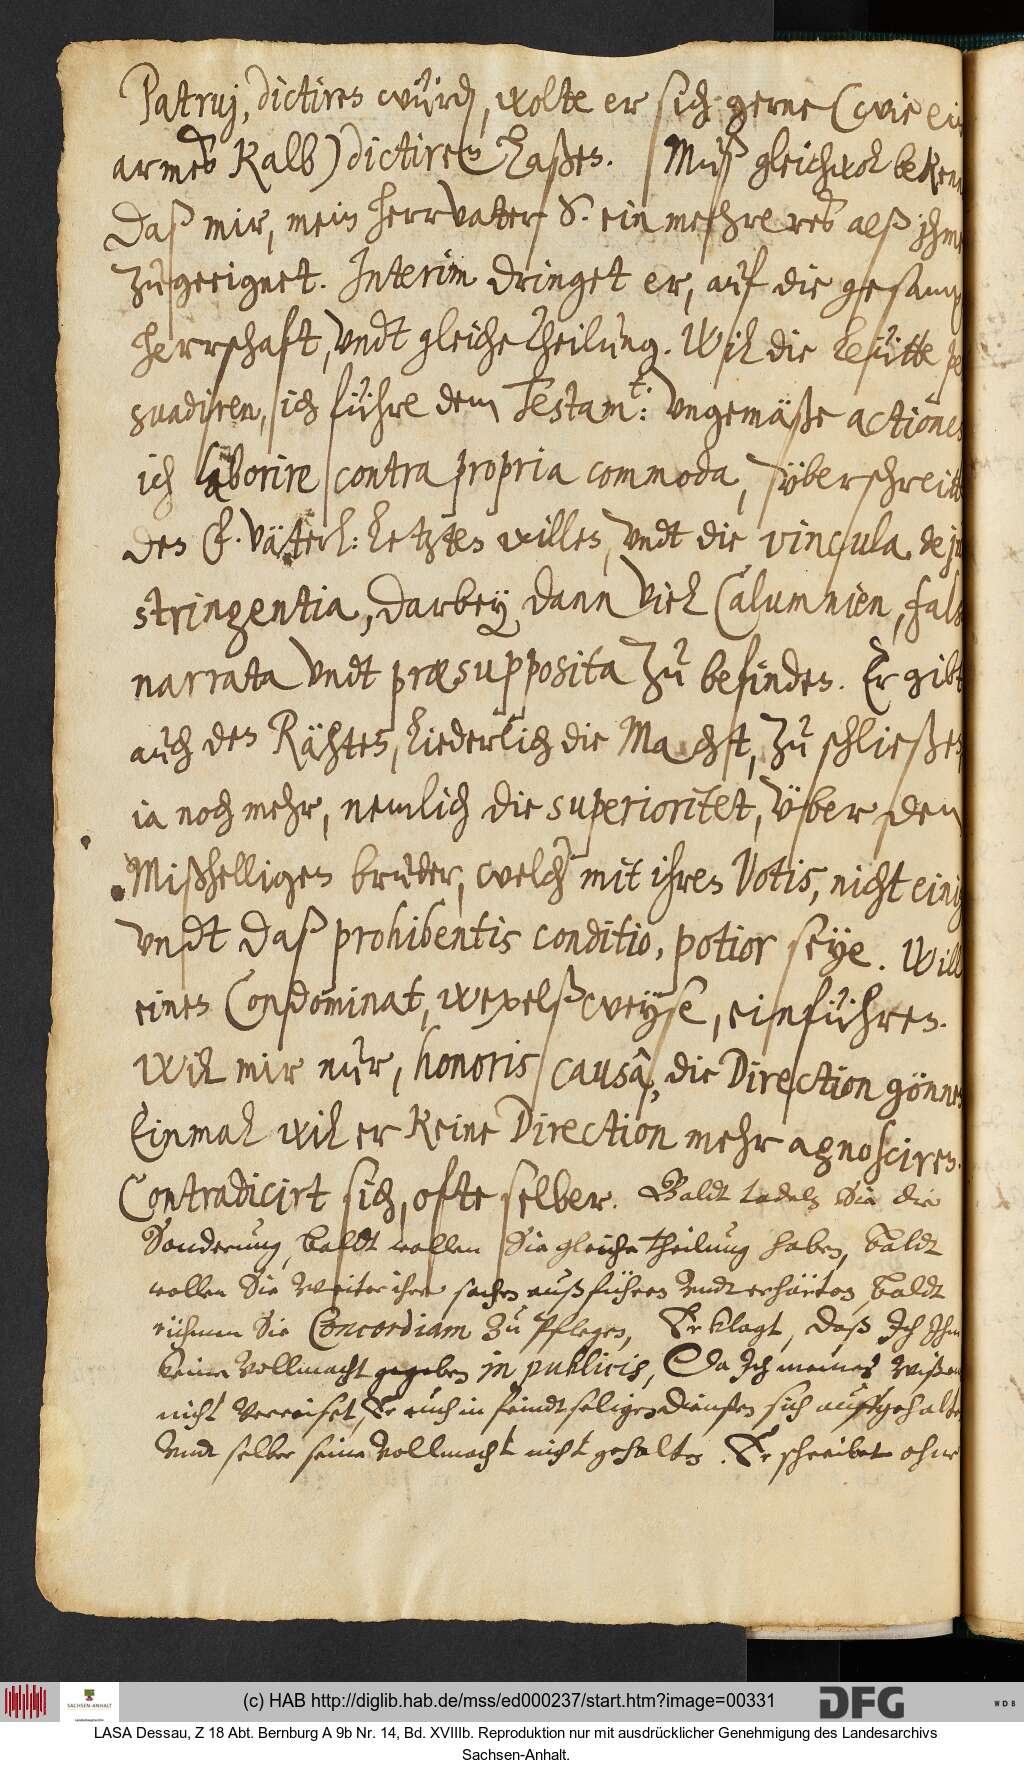 Patruj, dictiren würde, wolte er sich gerne (wie ein
armes Kalb) dictiren laßen. Muß gleichwol beken
Daß mir, mein herrvatter S. ein mehreres alß ihme
zugeeignet. Interim dringet er, auf die gesamp
herrschaft, undt gleiche theilung. Wil die leütte per
suadiren, ich führe dem Testamt: ungemäße actiones
ich laborire contra propria commoda, überschreitt
den C. väterl: letzten willen, undt die vincula, de ju
stringentia, darbey dann viel Calumnien, fals
narrata undt præsupposita zu befinden. Er gibt
auch den Rähten, liederlich die Macht, zu schließen
ia noch mehr, nemlich die superioritet, über den
Mißhelligen bruder, welche mit ihren Votis, nicht einig
undt daß prohibentis conditio, potior seye. Will
einen Condominat, wexelßweyse, einführen.
Wil mir nur, honoris causâ, die Direction gönnen
Einmal wil er keine Direction mehr agnosciren.
Contradicirt sich, ofte selber. Baldt tadeln Sie die
Sonderung, baldt wollen Sie gleiche theilung haben, baldt
wollen Sie weiter ihre sachen außführen undt erhärten, baldt
rühmen Sie Concordiam zu pflegen, Er klagt, daß Ich Ihm
keine vollmacht gegeben in publicis, Da Ich meines wißens
nicht verreiset, Er auch in feindtseligen diensten sich auffgehalten
undt selber seine vollmacht nicht gehalten. Er schreibet ohne
(c) HAB http://diglib.hab.de/mss/ed000237/start.htm?image=00331
SACHSEN-ANHALT
DFG
WDB
LASA Dessau, Z 18 Abt. Bernburg A 9b Nr. 14, Bd. XVIIIb. Reproduktion nur mit ausdrücklicher Genehmigung des Landesarchivs
Sachsen-Anhalt.